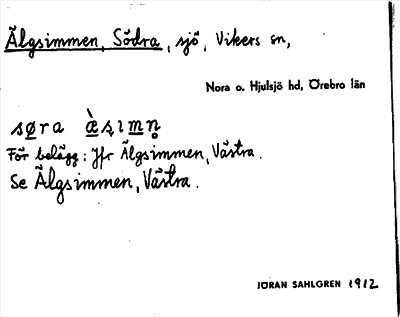 Älgsimmen, Södra, sjö, Vikers sn,
Nora o. Hjulsjö hd, Örebro län
För belägg: Jfr Älgsimmen, Västra.
Se Älgsimmen, Västra.
JÖRAN SAHLGREN 1912